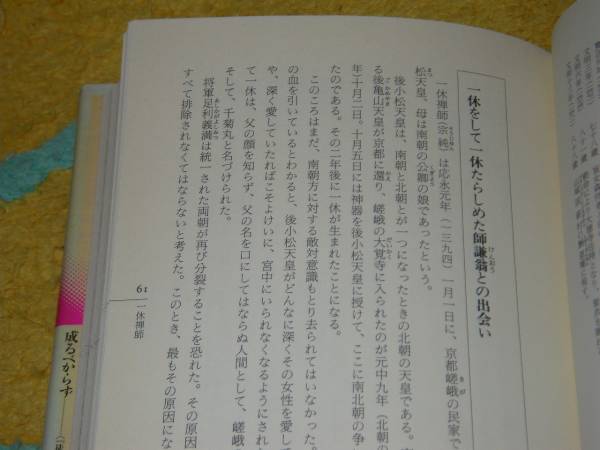 一休をして一休たらしめた師謙翁との出会い
けんおう
一休禅師(宗純)は応永元年(一三九四)一月一日に、京都嵯峨の民家で
そうじゅん
さが
松天皇、母は南朝の公卿の娘であったという。
まつ
くぎょう
後小松天皇は、南朝と北朝とが一つになったときの北朝の天皇である。
る後亀山天皇が京都に還り、嵯峨の大覚寺に入られたのが元中九年(北朝の
ごかめやま
かえ
だいかくじ
年)十月二日。十月五日には神器を後小松天皇に授けて、ここに南北朝の争
たのである。その二年後に一休が生まれたことになる。
このころはまだ、南朝方に対する敵対意識もとり去られてはいなかった。
の血を引いているとわかると、後小松天皇がどんなに深くその女性を愛して
や、深く愛していたればこそよけいに、宮中にいられなくなるようにされ
て一休は、父の顔を知らず、父の名を口にしてはならぬ人間として、嵯峨
そして、千菊丸と名づけられた。
将軍足利義満は統一された両朝が再び分裂することを恐れた。その原因
あしかがよしみつ
すべて排除されなくてはならないと考えた。このとき、最もその原因にな
61 一休禅師
成るべからず